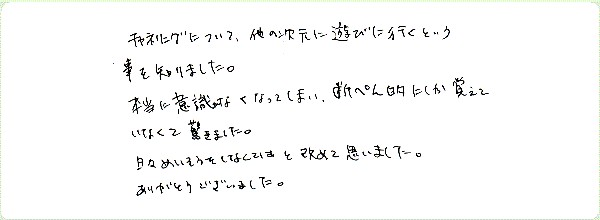 チャネリングについて、他の次元に遊びに行くという
事を知りました。
本当に意識がなくなってしまい、断ぺん的にしか覚えて
いなくて驚きました。
日々めいそうをしなくてはと改めて思いました。
ありがとうございました。